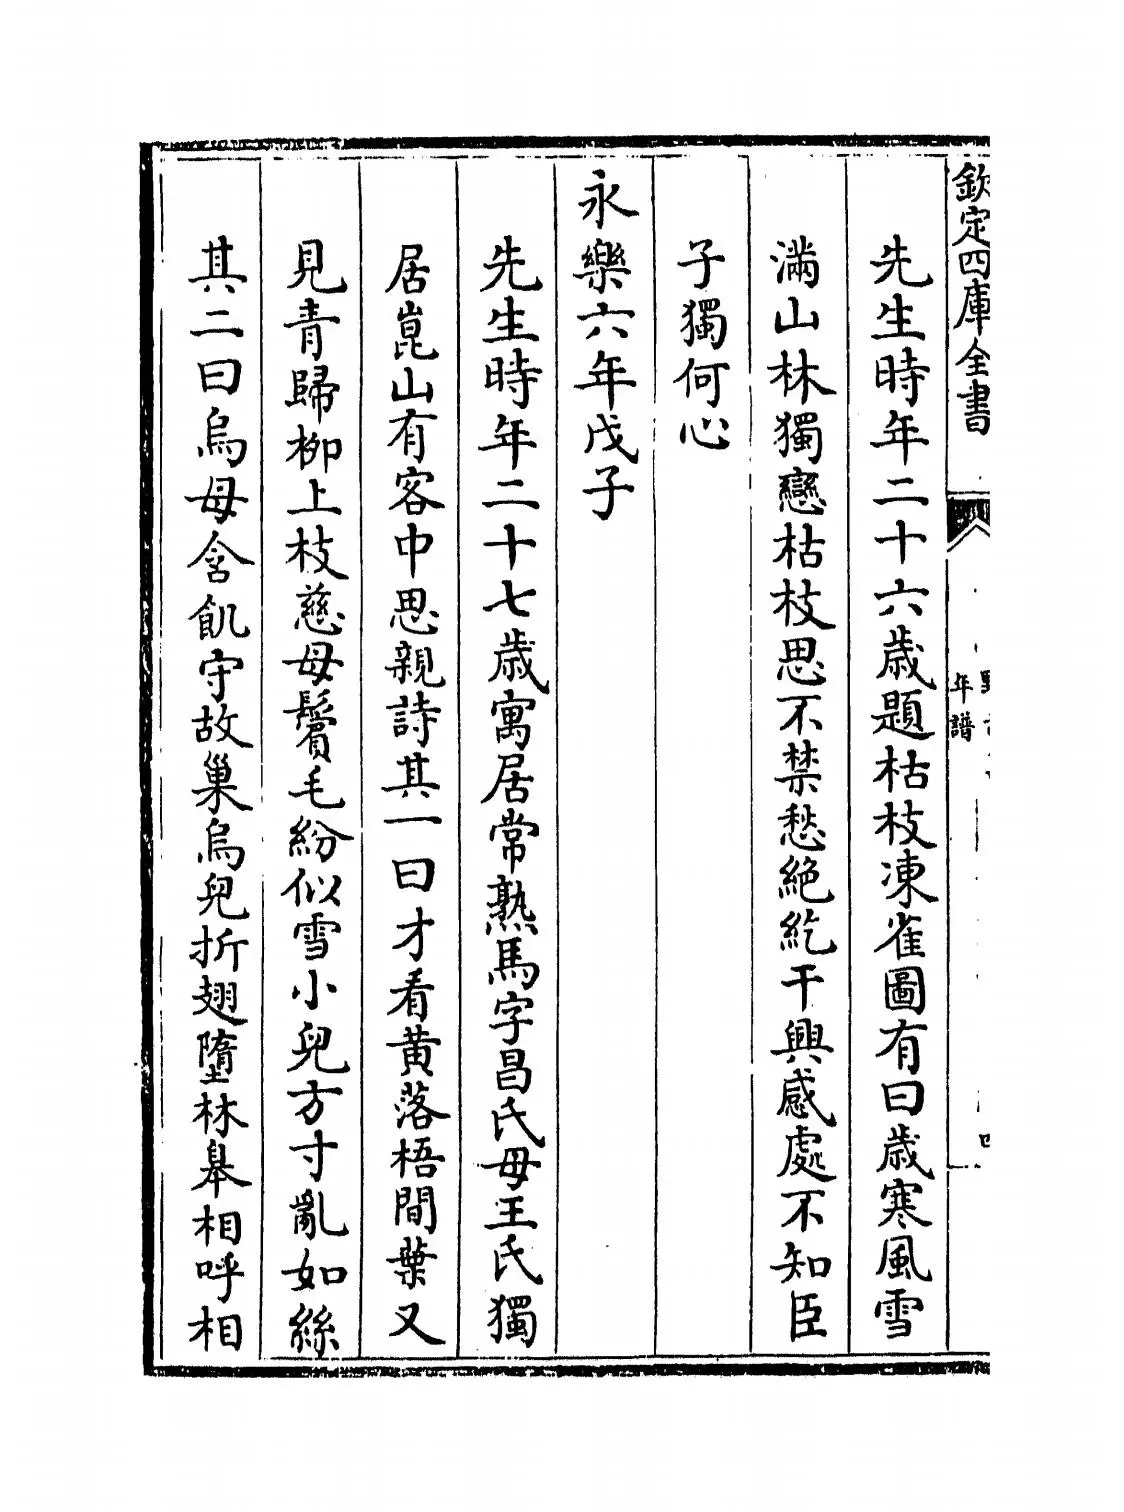 欽定四庫全書
年譜
先生時年二十六歲題枯枝凍雀圖有曰歲寒風雪
滿山林獨戀枯枝思不禁愁絶紇干興感處不知臣
子獨何心
永樂六年戊子
先生時年二十七歲寓居常熟馬字昌氏母王氏獨
居崑山有客中思親詩其一曰才看黃落梧間葉又
見青歸柳上枝慈母鬢毛紛似雪小兒方寸亂如絲
其二曰烏母含飢守故巢烏兒折翅墮林皋相呼相